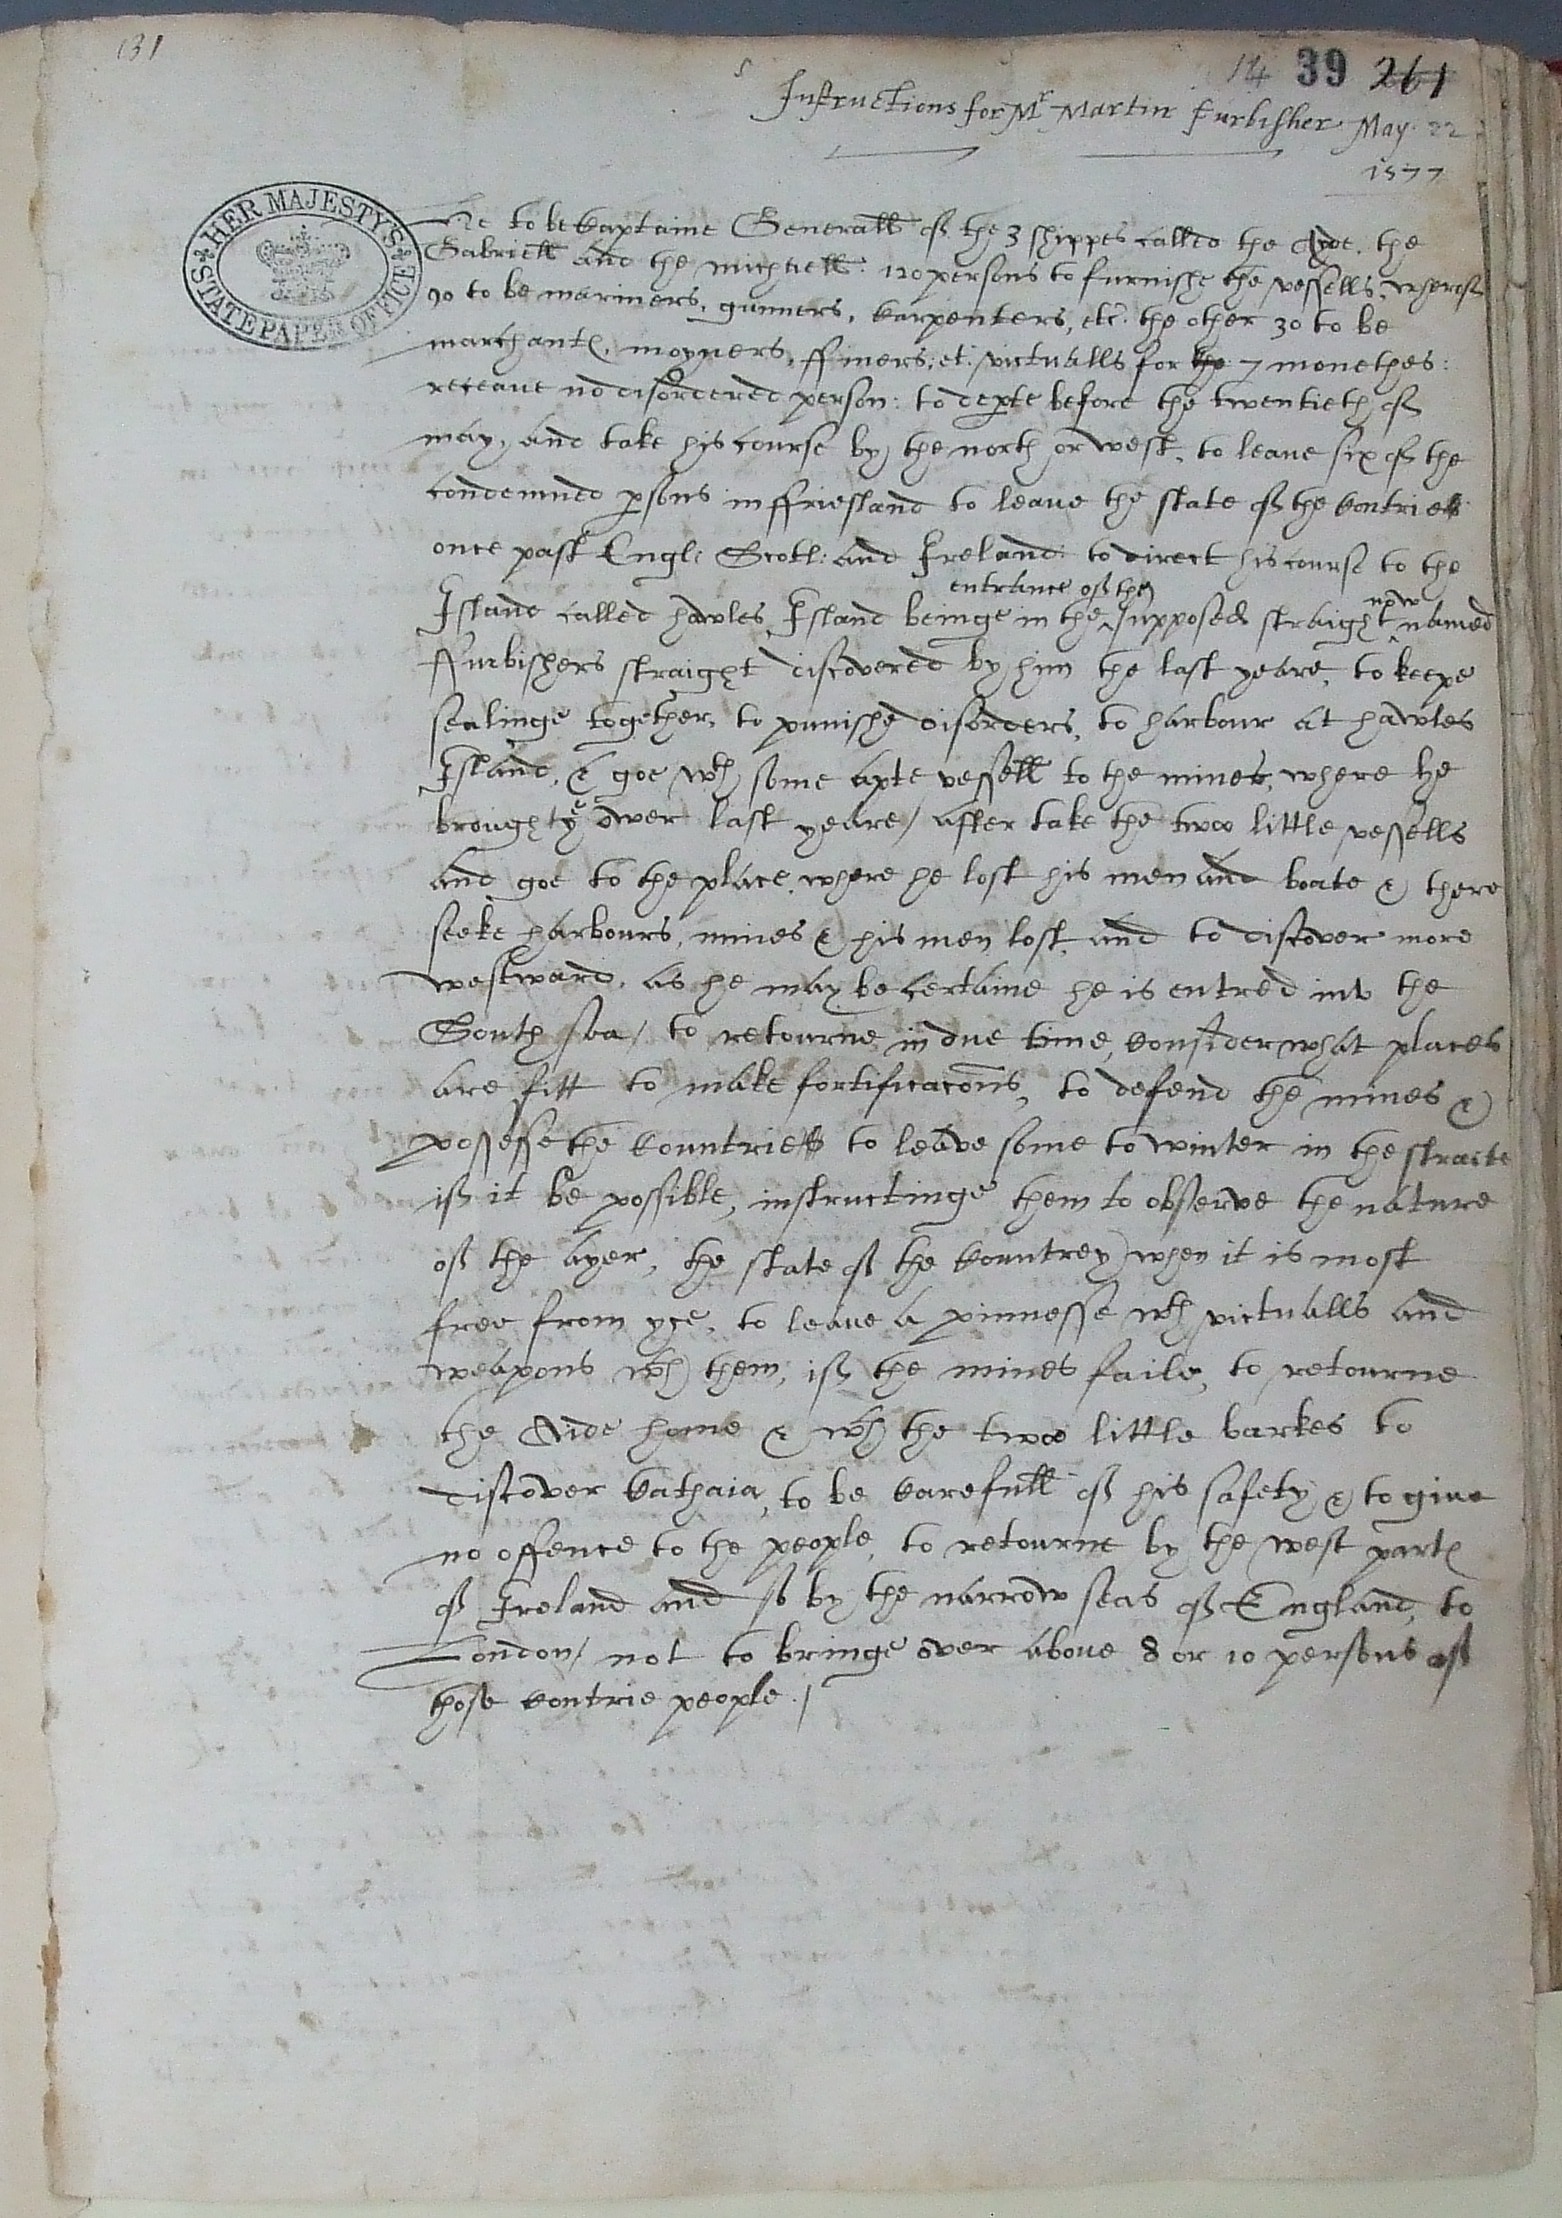 131
14 39 261
Instructions for Mr Martin Furbisher May 22
1577
HER MAJESTY'S STATE PAPER OFFICE
He to be Captaine Generall of the 3 shippes called the Ayde. the
Gabriell and the Michaell: 120 persons to furnishe the vessells, wherof
90 to be mariners, gunners, carpenters, etc. the other 30 to be
marchantes, moyners, ffiners, et. victualls for the 7 monethes:
receaue no disordered person: to depte before the twentieth of
may, and take his course by the north or west, to leaue six of the
condemned psons in ffriesland to leaue the state of the contries
once past Engl: Scotl: and Ireland: to direct his course to the
entrance of the
Island called hawles Island beinge in the supposed straight now named
ffurbishers straight discovered by him the last yeare, to keepe
sealinge together, to punishe disorders, to harbour at hawles
Island, & goe wth some apte vessell to the mines, where he
brought ye ower last yeare / after take the twoo little vessells
and goe to the place where he lost his men and boate & there
seeke harbours, mines & his men lost, and to discover more
westward, as he may be certaine he is entred into the
South sea / to retourne in due time, consider what places
are fitt to make fortificacons, to defend the mines &
possesse the countries to leave some to winter in the straite
if it be possible, instructinge them to observe the nature
of the ayer, the state of the countrey when it is most
free from yce, to leaue a pinnesse wth victualls and
weapons wth them, if the mines faile, to retourne
the Aide home & wth the twoo little barkes to
discover Cathaia, to be carefull of his safety & to giue
no offence to the people, to retourne by the west partes
of Ireland and so by the narrow seas of England, to
London / not to bringe over aboue 8 or 10 persons of
those contrie people. /